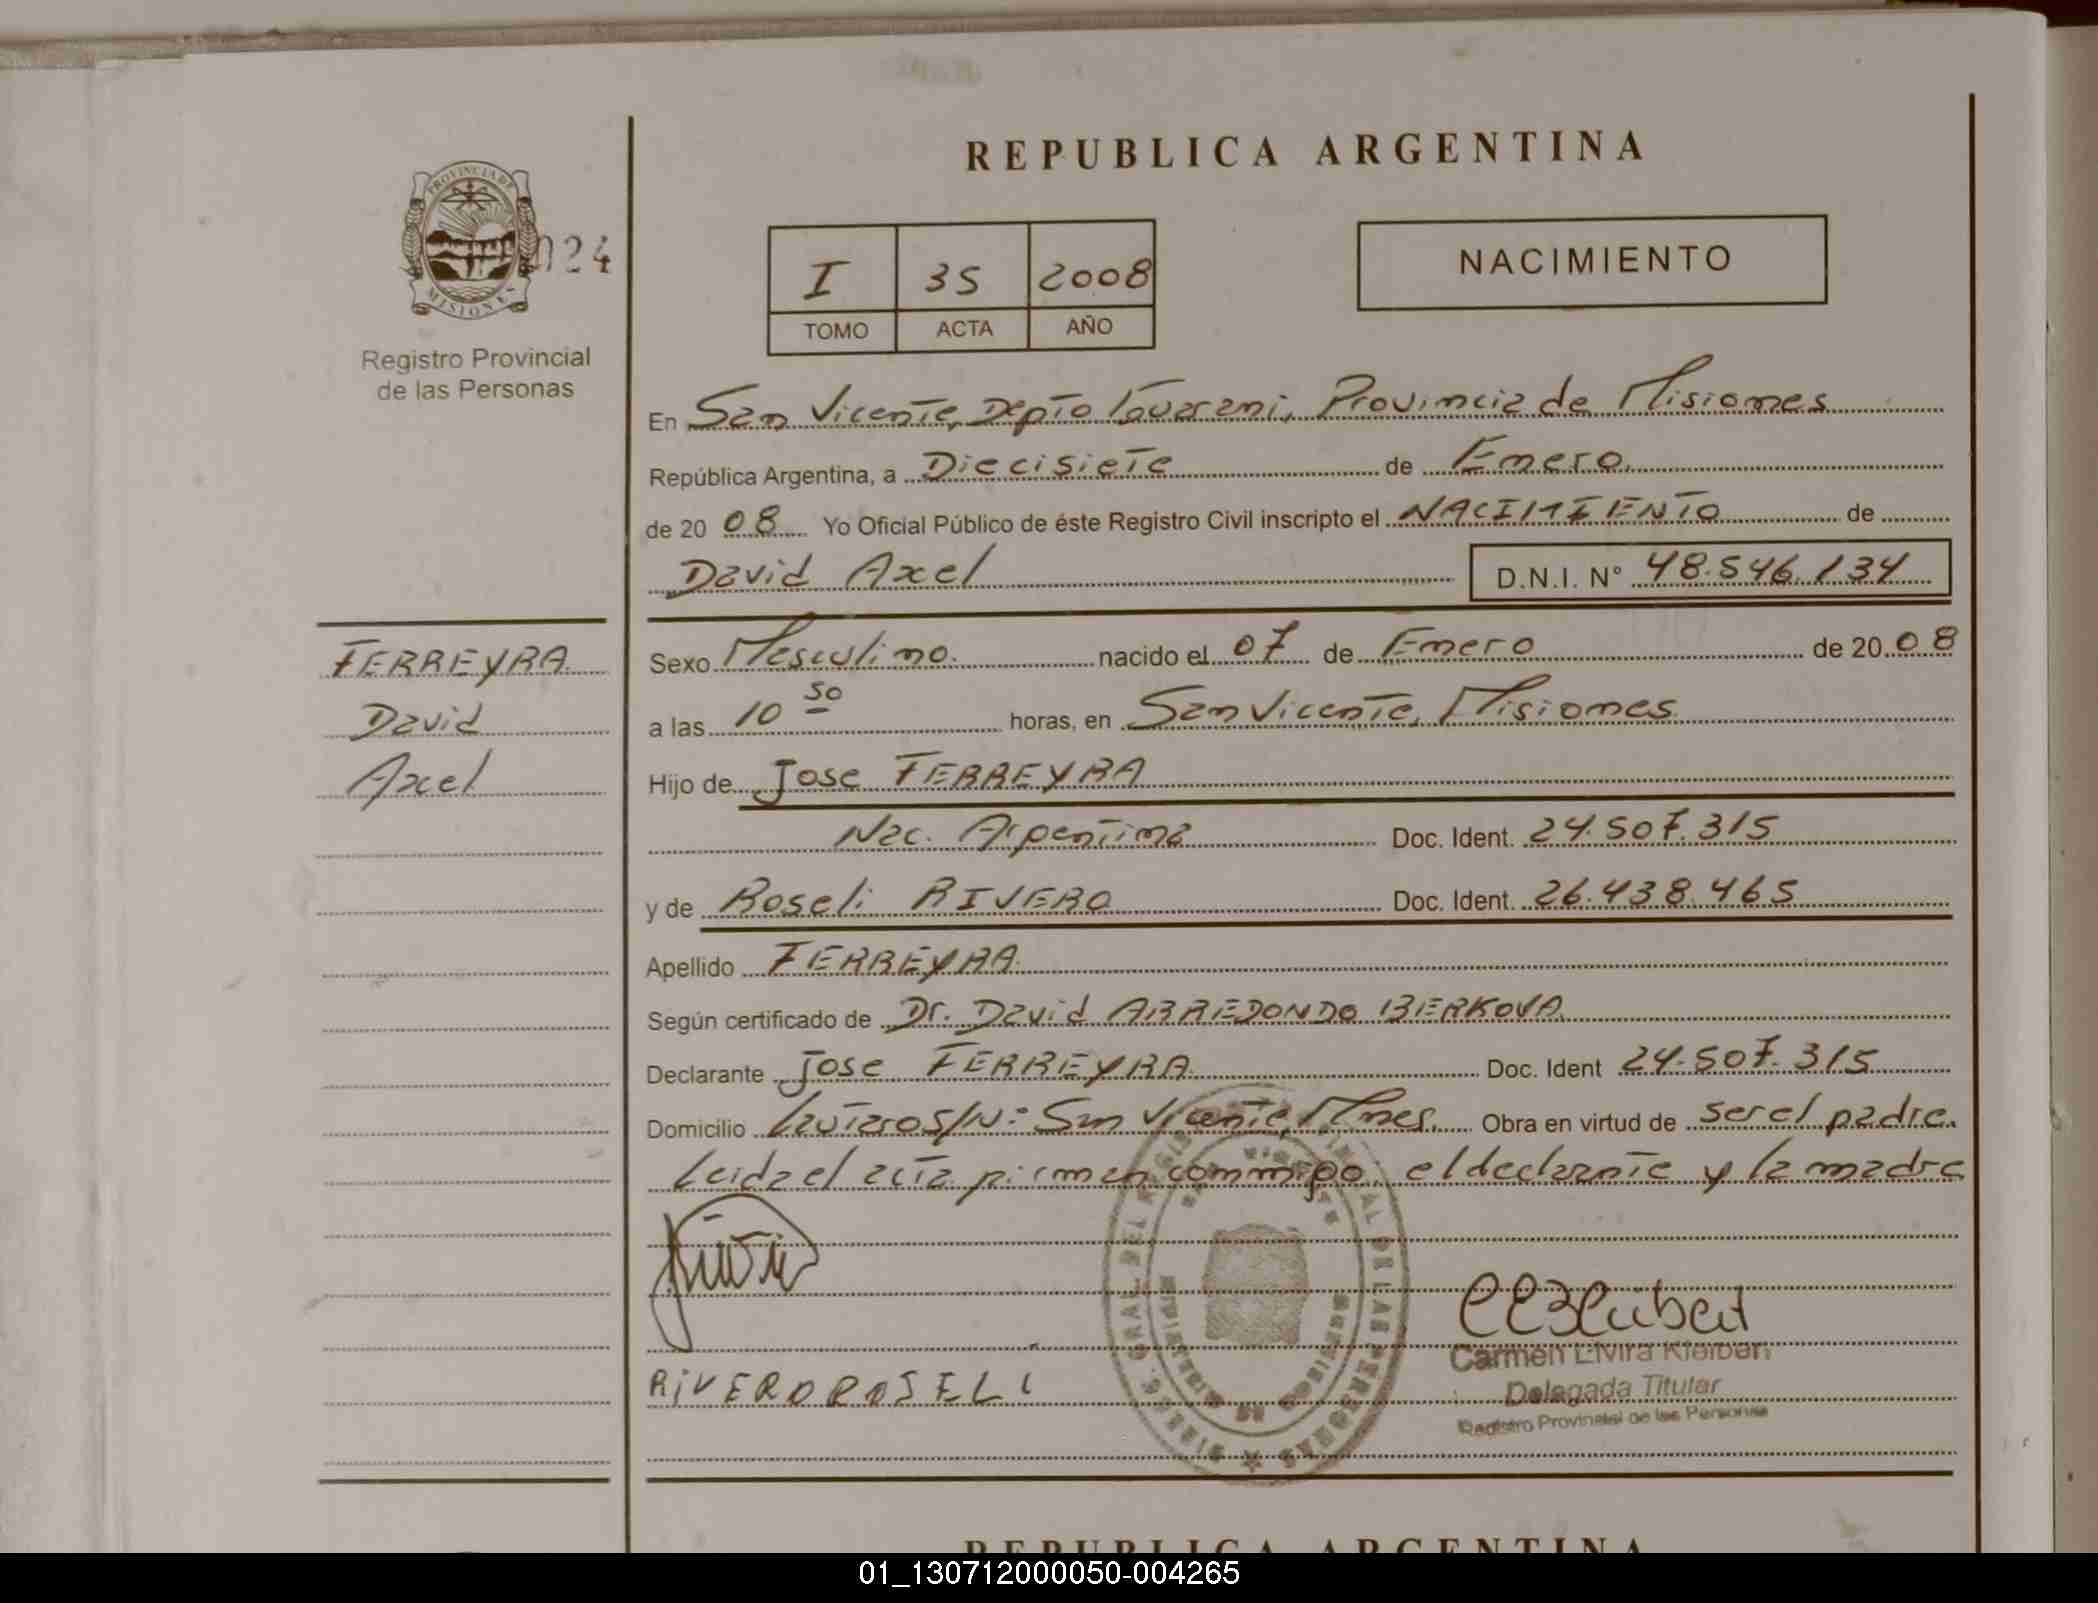 REPUBLICA ARGENTINA
PROVINCIA DE
MISIONES
024
Registro Provincial
de las Personas
I 35 2008
TOMO ACTA AÑO
NACIMIENTO
En San Vicente, Depto Guarani, Provincia de Misiones
República Argentina, a Diecisiete de Enero
de 20 08 Yo Oficial Público de éste Registro Civil inscripto el NACIMIENTO de
David Axel D.N.I. N° 48.546.134
FERREYRA
David
Axel
Sexo Masculino. nacido el 07 de Enero de 20 08
a las 10 50 horas, en San Vicente, Misiones
Hijo de Jose FERREYRA
Nac. Argentina Doc. Ident. 24.507.315
y de Roseli RIVERO Doc. Ident. 26.438.465
Apellido FERREYRA
Según certificado de Dr. David ARREDONDO BERKOVA
Declarante Jose FERREYRA Doc. Ident 24.507.315
Domicilio Lavtaro S/N: San Vicente, Mnes. Obra en virtud de ser el padre.
Leida el acta firman conmigo, el declarante y la madre
RIVERO ROSELI
Carmen Elvira Kleiben
Delegada Titular
Registro Provincial de las Personas
REPUBLICA ARGENTINA
01_130712000050-004265